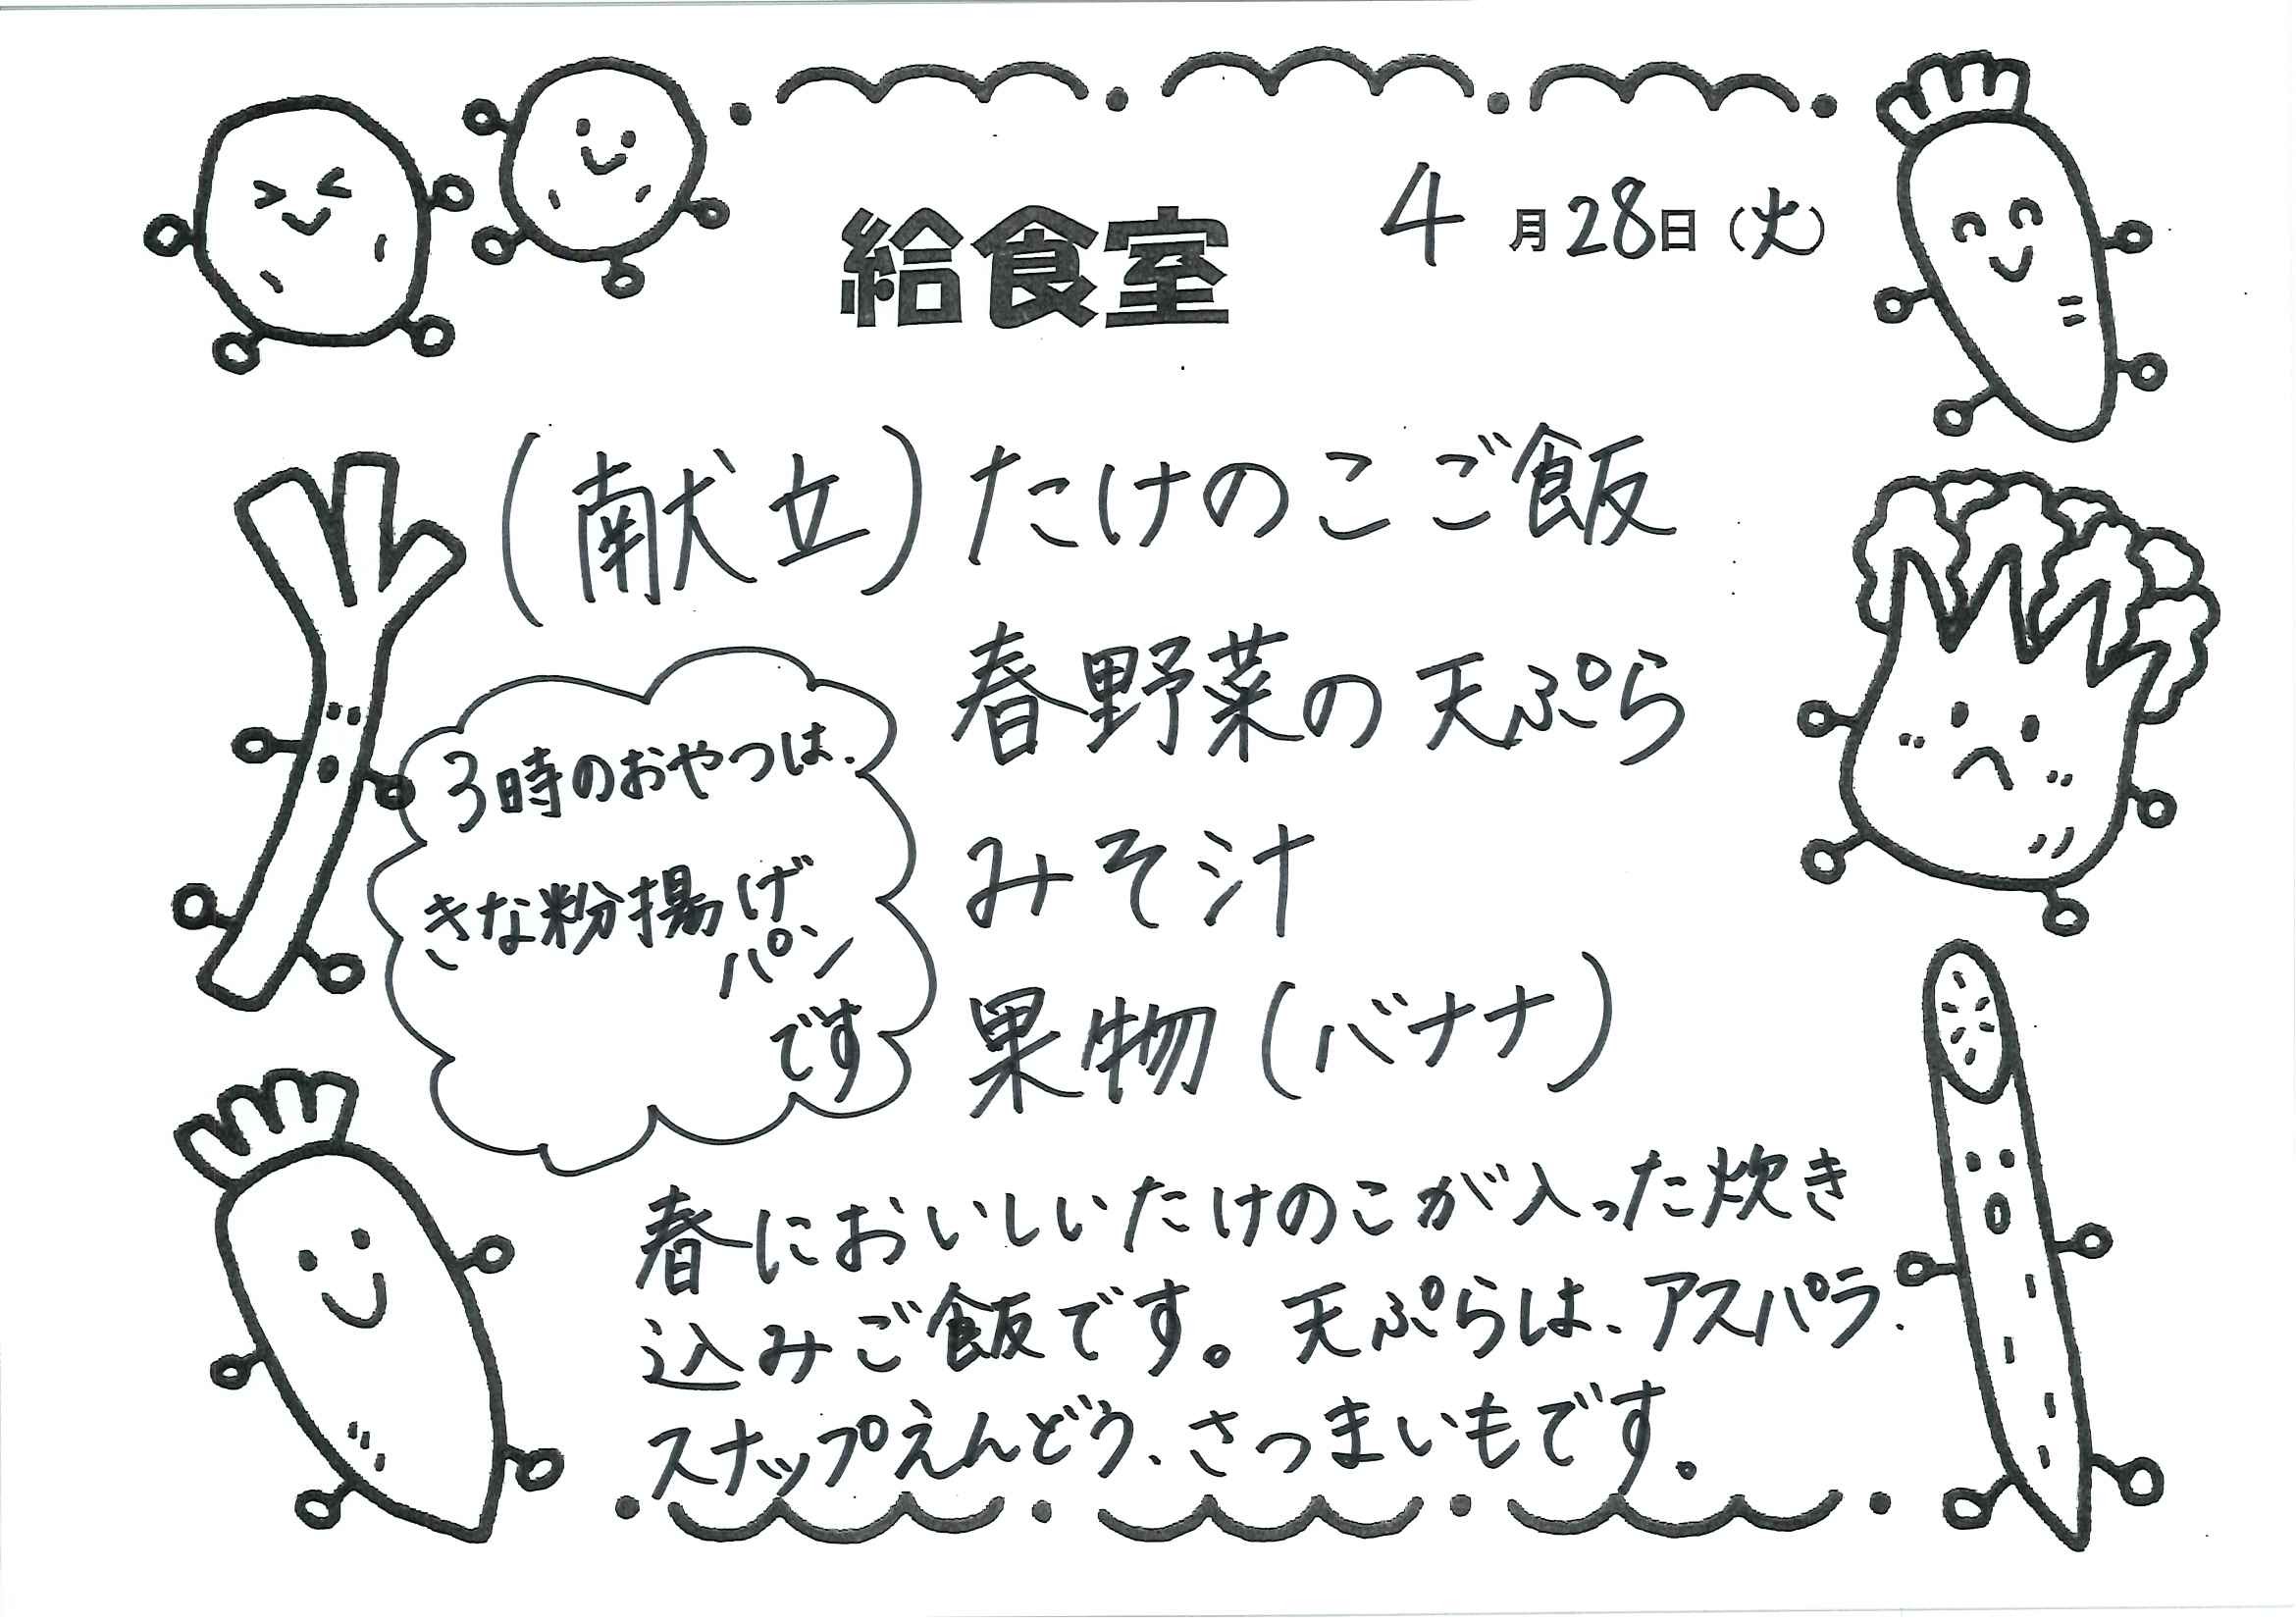 給食室
4月28日(火)
(献立)たけのこご飯
春野菜の天ぷら
みそ汁
果物(バナナ)
3時のおやつは、
きな粉揚げ
パン
です
春においしいたけのこが入った炊き
込みご飯です。天ぷらは、アスパラ、
スナップえんどう、さつまいもです。